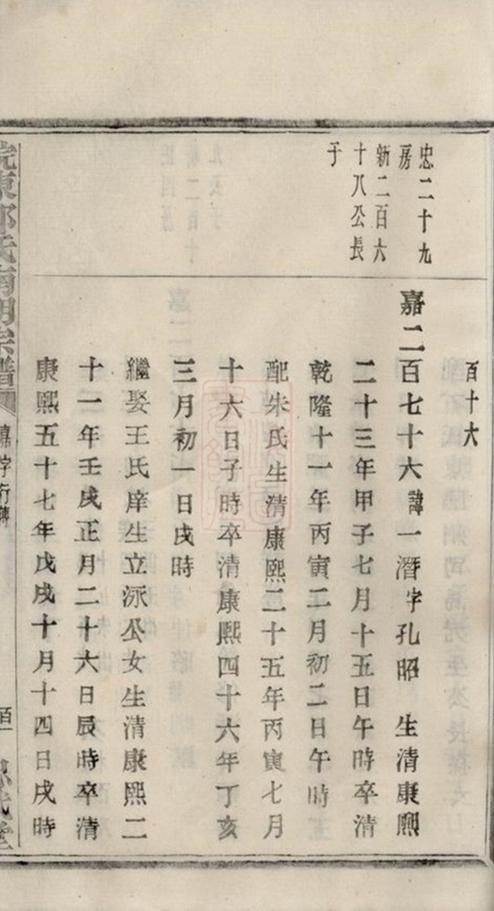 忠二十九
房
新二百六
十八公長
子
百十六
嘉二百七十六諱一潛字孔昭 生清康熙
二十三年甲子七月十五日午時卒清
乾隆十一年丙寅二月初二日午時
配朱氏生清康熙二十五年丙寅七月
十六日子時卒清康熙四十六年丁亥
三月初一日戌時
繼娶王氏庠生立泳公女生清康熙二
十一年壬戌正月二十六日辰時卒清
康熙五十七年戊戌十月十四日戌時